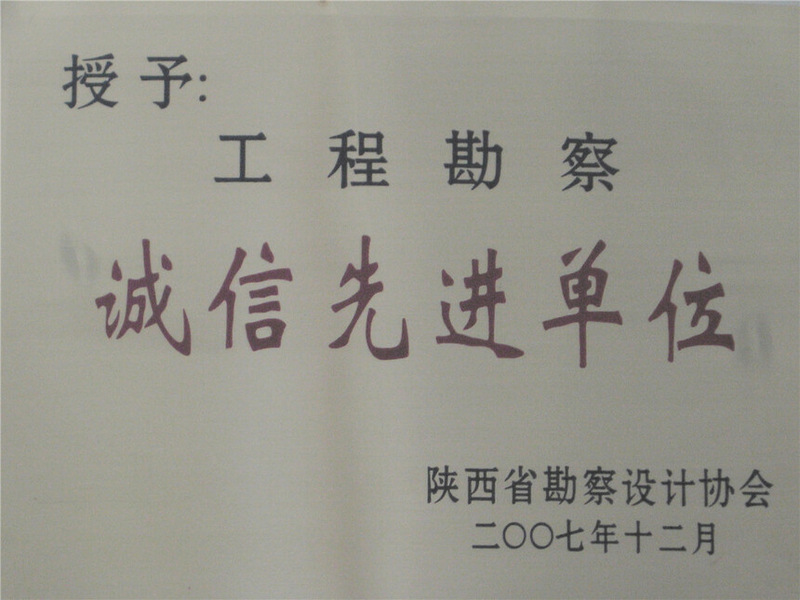 授予:
工程勘察
诚信先进单位
陕西省勘察设计协会
二〇〇七年十二月